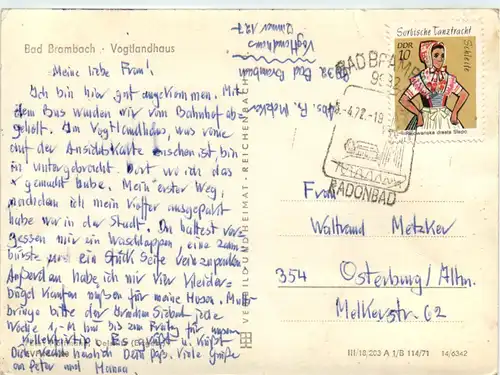 Bad Brambach · Vogtlandhaus
Meine liebe Frau!
Ich bin hier gut angekommen. Mit
dem Bus wurden wir vom Bahnhof ab-
geholt. Im Vogtlandhaus, was vorne
auf der Ansichtskarte ist bin
ich untergebracht. Dort wo ich das
x gemacht habe. Mein erster Weg,
nachdem ich mein Koffer ausgepakt
habe war in der Stadt. Du hattest ver-
gessen mir ein Waschlappen, eine Zahn-
bürste und ein Stück Seife einzupacken
Außerdem habe ich mir vier Kleider-
bügel kaufen müßen für meine Hosen.
bringe bitte der Siebert jede
Woche 1,-M bis zum für
Es grüßt u. küßt
Dich recht herzlich Dein Viele grüße
an Peter und
VERLAG BILD UND HEIMAT · REICHENBACH
Abs. R. Metzker
9932 Bad Brambach
Vogtlandhaus
Zimmer 127
Sorbische Tanztracht
Schleife
DDR
10
BAD BRAMBACH
9932
-4.72.-19
RADONBAD
Frau
Waltraud Metzker
354 Osterburg/Altm.
Melkerstr. 62
III/18/203 A 1/B 114/71 14/6342